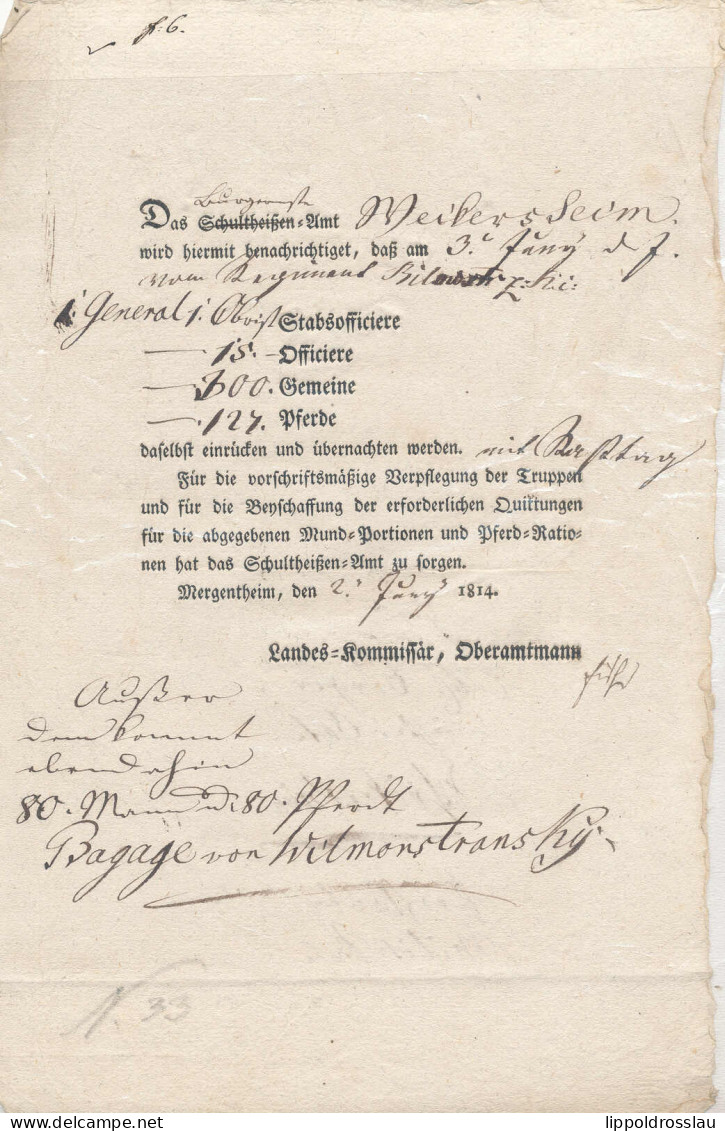 f: 6.
Burgermstr
Das Schultheißen-Amt Weikersheim.
wird hiermit benachrichtiget, daß am 3.ᵗ Juny d J.
vom Regiment
1. General 1. Obrist Stabsofficiere
— 15. – Officiere
— 300. Gemeine
— 127. Pferde
daselbst einrücken und übernachten werden. mit Rasttag
Für die vorschriftsmäßige Verpflegung der Truppen
und für die Beyschaffung der erforderlichen Quittungen
für die abgegebenen Mund-Portionen und Pferd-Ratio-
nen hat das Schultheißen-Amt zu sorgen.
Mergentheim, den 2.ᵗ Juny 1814.
Landes-Kommissär, Oberamtmann
Außer
dem kommt
ebendahin
80. Mann u: 80. Pferdt
Bagage von Wilmonstransky.
N. 33
lippoldrosslau